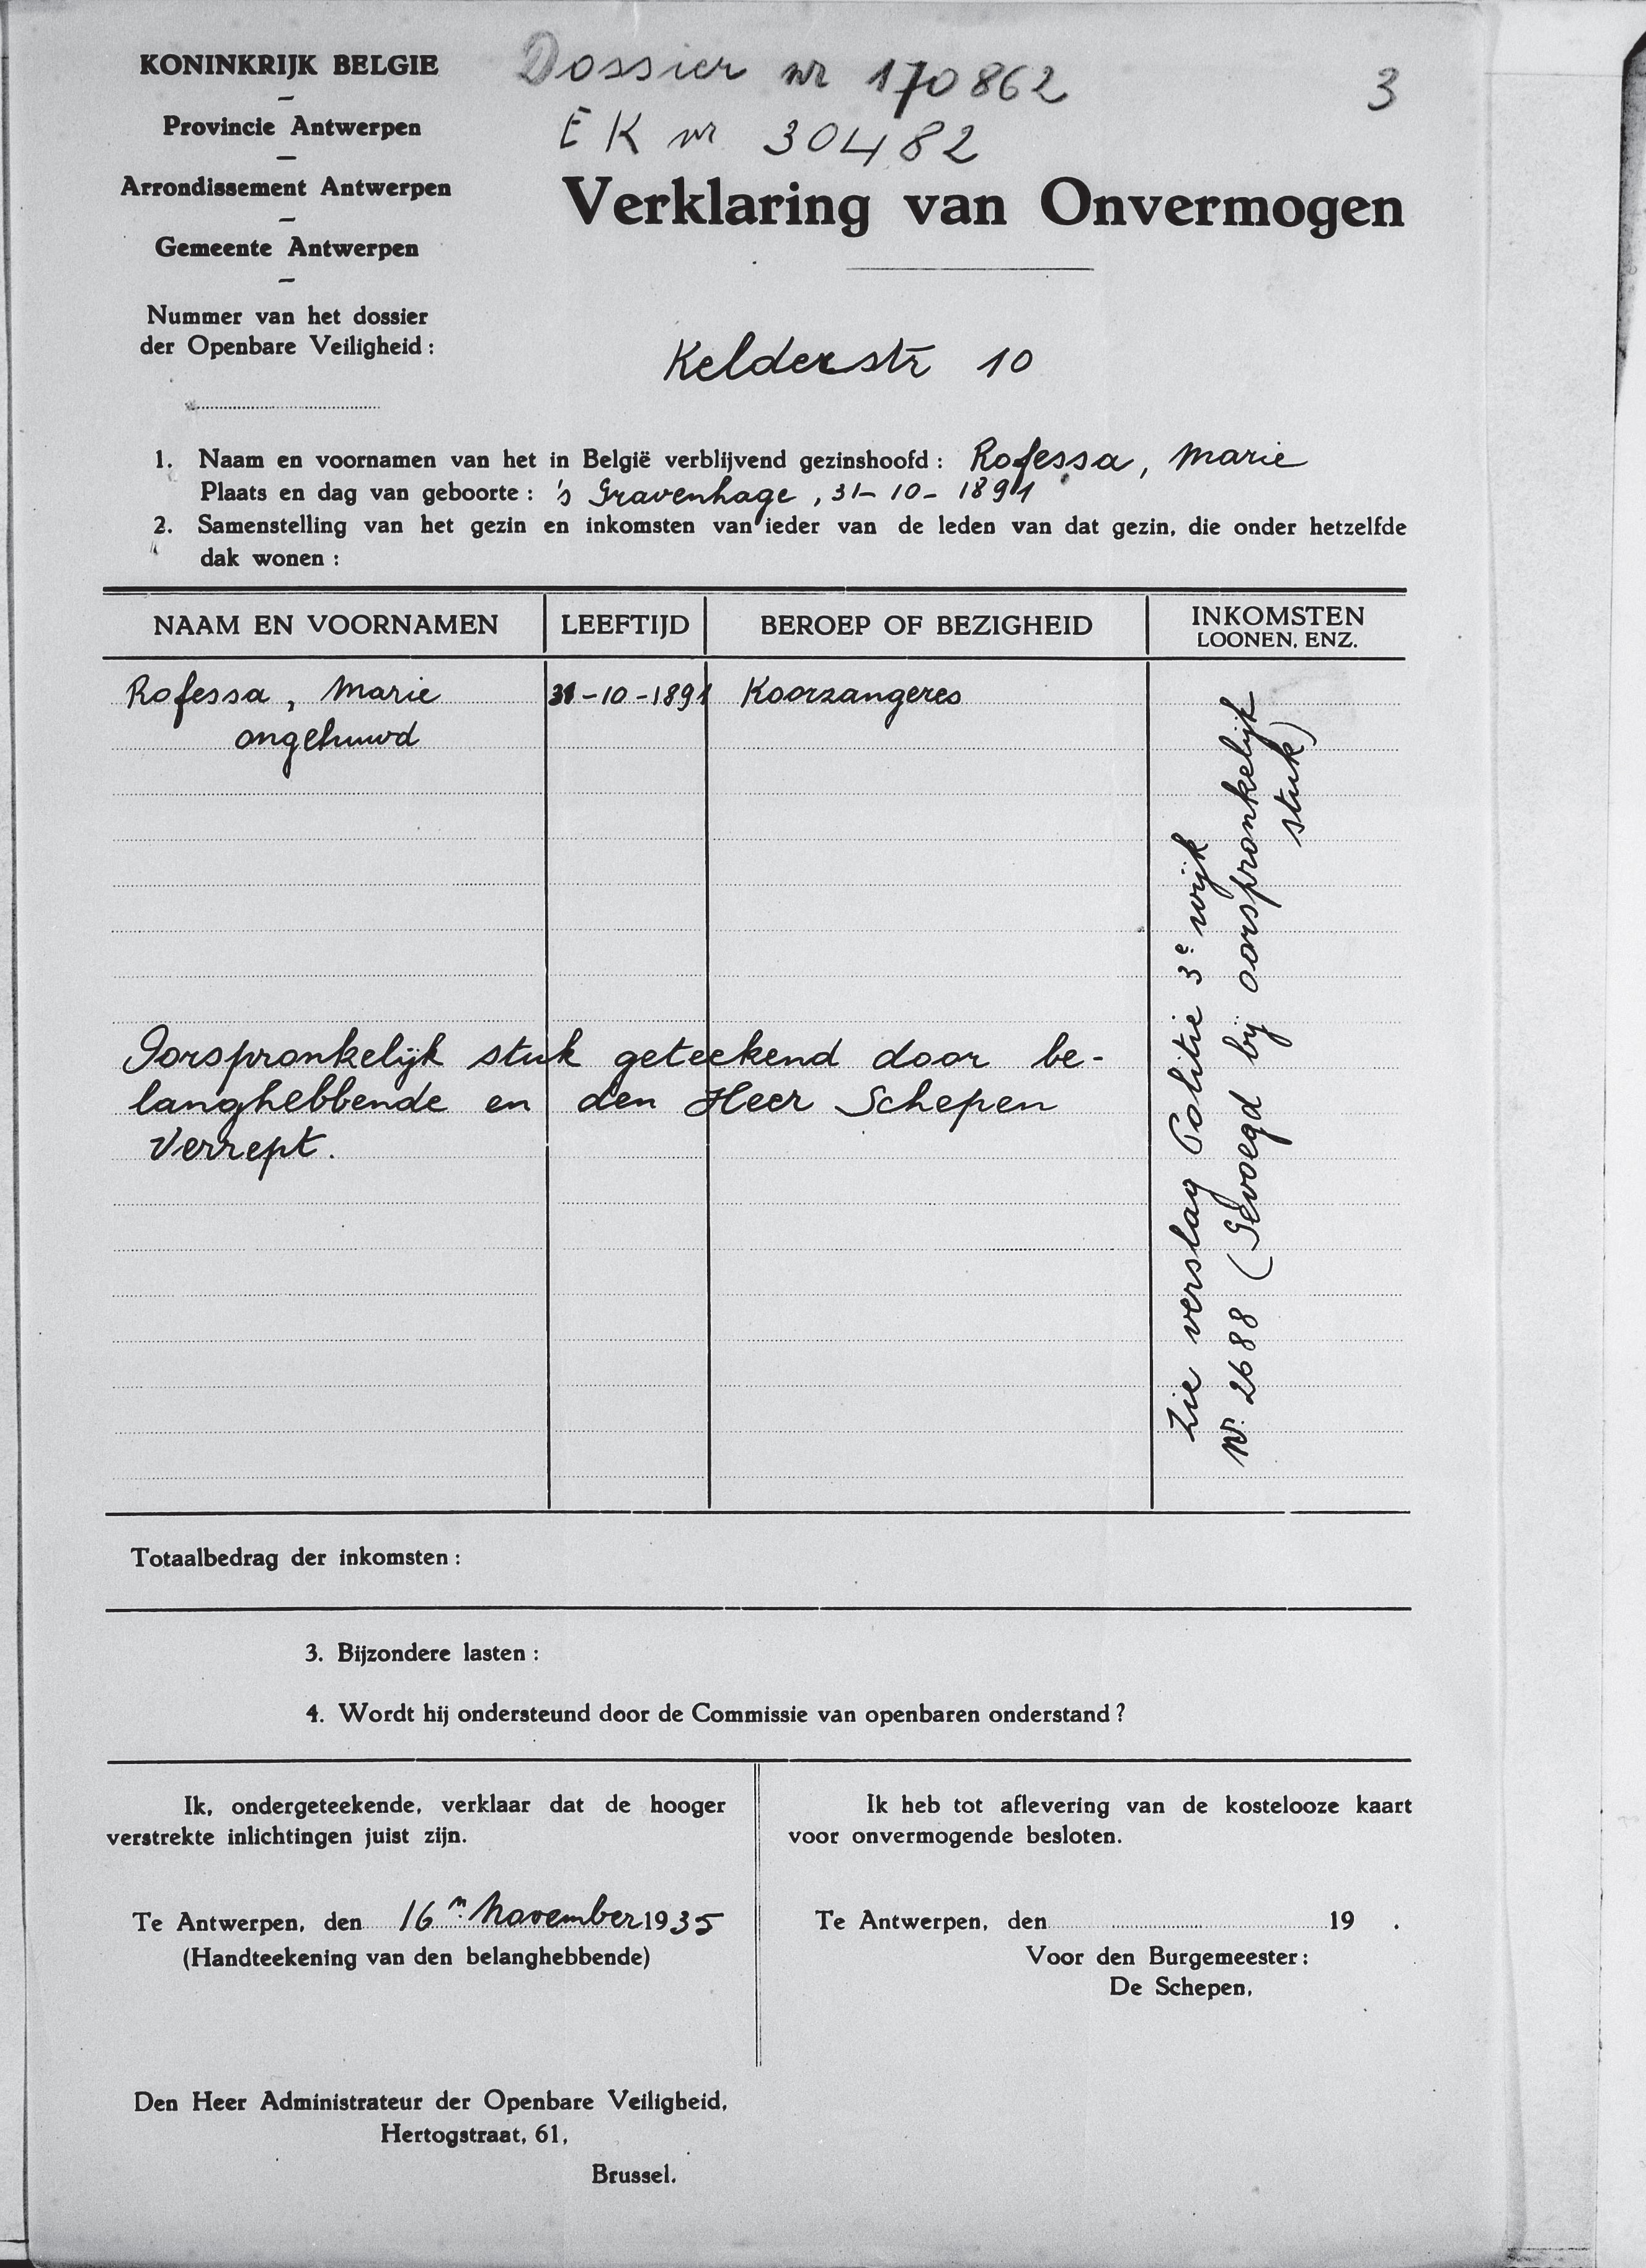 KONINKRIJK BELGIE
Provincie Antwerpen
Arrondissement Antwerpen
Gemeente Antwerpen
Nummer van het dossier
der Openbare Veiligheid :
Dossier nr 170862
3
E K nr 30482
Verklaring van Onvermogen
Kelderstr 10
1. Naam en voornamen van het in België verblijvend gezinshoofd : Rofessa, Marie
Plaats en dag van geboorte : 's Gravenhage, 31-10-1891
2. Samenstelling van het gezin en inkomsten van ieder van de leden van dat gezin, die onder hetzelfde
dak wonen :
NAAM EN VOORNAMEN LEEFTIJD BEROEP OF BEZIGHEID INKOMSTEN
LOONEN, ENZ.
Rofessa, Marie 31-10-1891 Koorzangeres
ongehuwd
Oorspronkelijk stuk geteekend door be-
langhebbende en den Heer Schepen
Verrept.
Zie verslag Politie 3e wijk
Nr 2688 (Gevoegd bij oorspronkelijk
stuk)
Totaalbedrag der inkomsten :
3. Bijzondere lasten :
4. Wordt hij ondersteund door de Commissie van openbaren onderstand ?
Ik, ondergeteekende, verklaar dat de hooger
verstrekte inlichtingen juist zijn.
Te Antwerpen, den 16n November 1935
(Handteekening van den belanghebbende)
Ik heb tot aflevering van de kostelooze kaart
voor onvermogende besloten.
Te Antwerpen, den 19 .
Voor den Burgemeester :
De Schepen,
Den Heer Administrateur der Openbare Veiligheid,
Hertogstraat, 61,
Brussel.